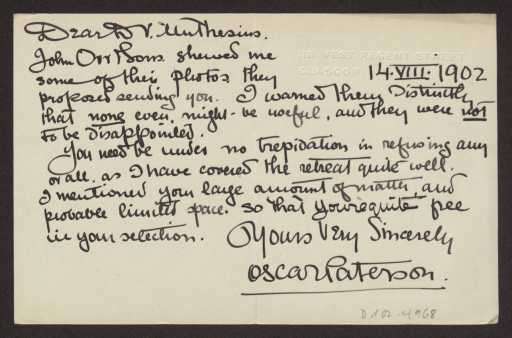 Dear D^r. Muthesius.
John Orr & Sons shewed me
118, WEST REGENT STREET,
GLASGOW.
some of their photos they
14.VIII.1902
proposed sending you. I warned them Distinctly
that none even, might-be useful, and they were not
to be disappointed.
You need be under no trepidation in refusing any
or all. as I have covered the retreat quite well.
I mentioned your large amount of matter, and
probable limited space. so that you're quite free
in your selection.
Yours Very Sincerely
Oscar Paterson.